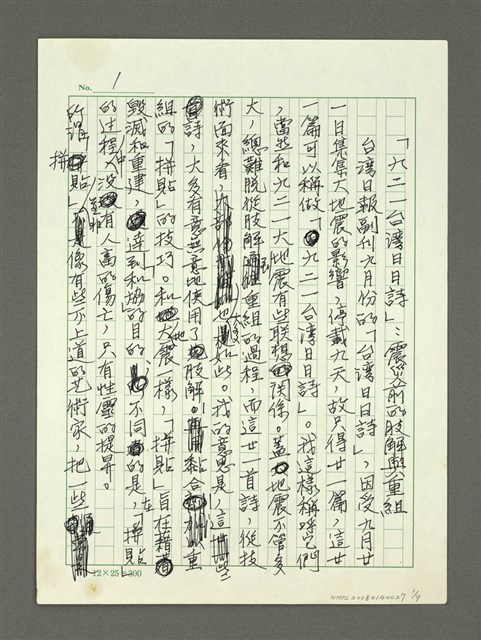 No. 1
「九二一台灣日日詩」:震災前的肢解與重組
台灣日報副刊九月份的「台灣日日詩」,因受九月廿
一日集集大地震的影響,停載九天,故只得廿一篇,這廿
一篇可以稱做「九二一台灣日日詩」。我這樣稱呼它們
,當然和九二一大地震有些聯想關係。蓋地震不管多
大,總難脫從肢解到重組的過程,而這廿一首詩,從技
術面來看,大致也是如此。我的意思是,這些
詩,大多有意無意地使用了肢解。結合重
組的「拼貼」的技巧。和大地震一樣,「拼貼」旨在藉
毀滅和重建,達到和協的目的,不同的是,在拼貼
的过程中,並沒有人畜的傷亡,只有性靈的提昇。
所謂拼貼,不是像有些不上道的艺術家,把一些
12×25=300
NMTL20180140027 1/9